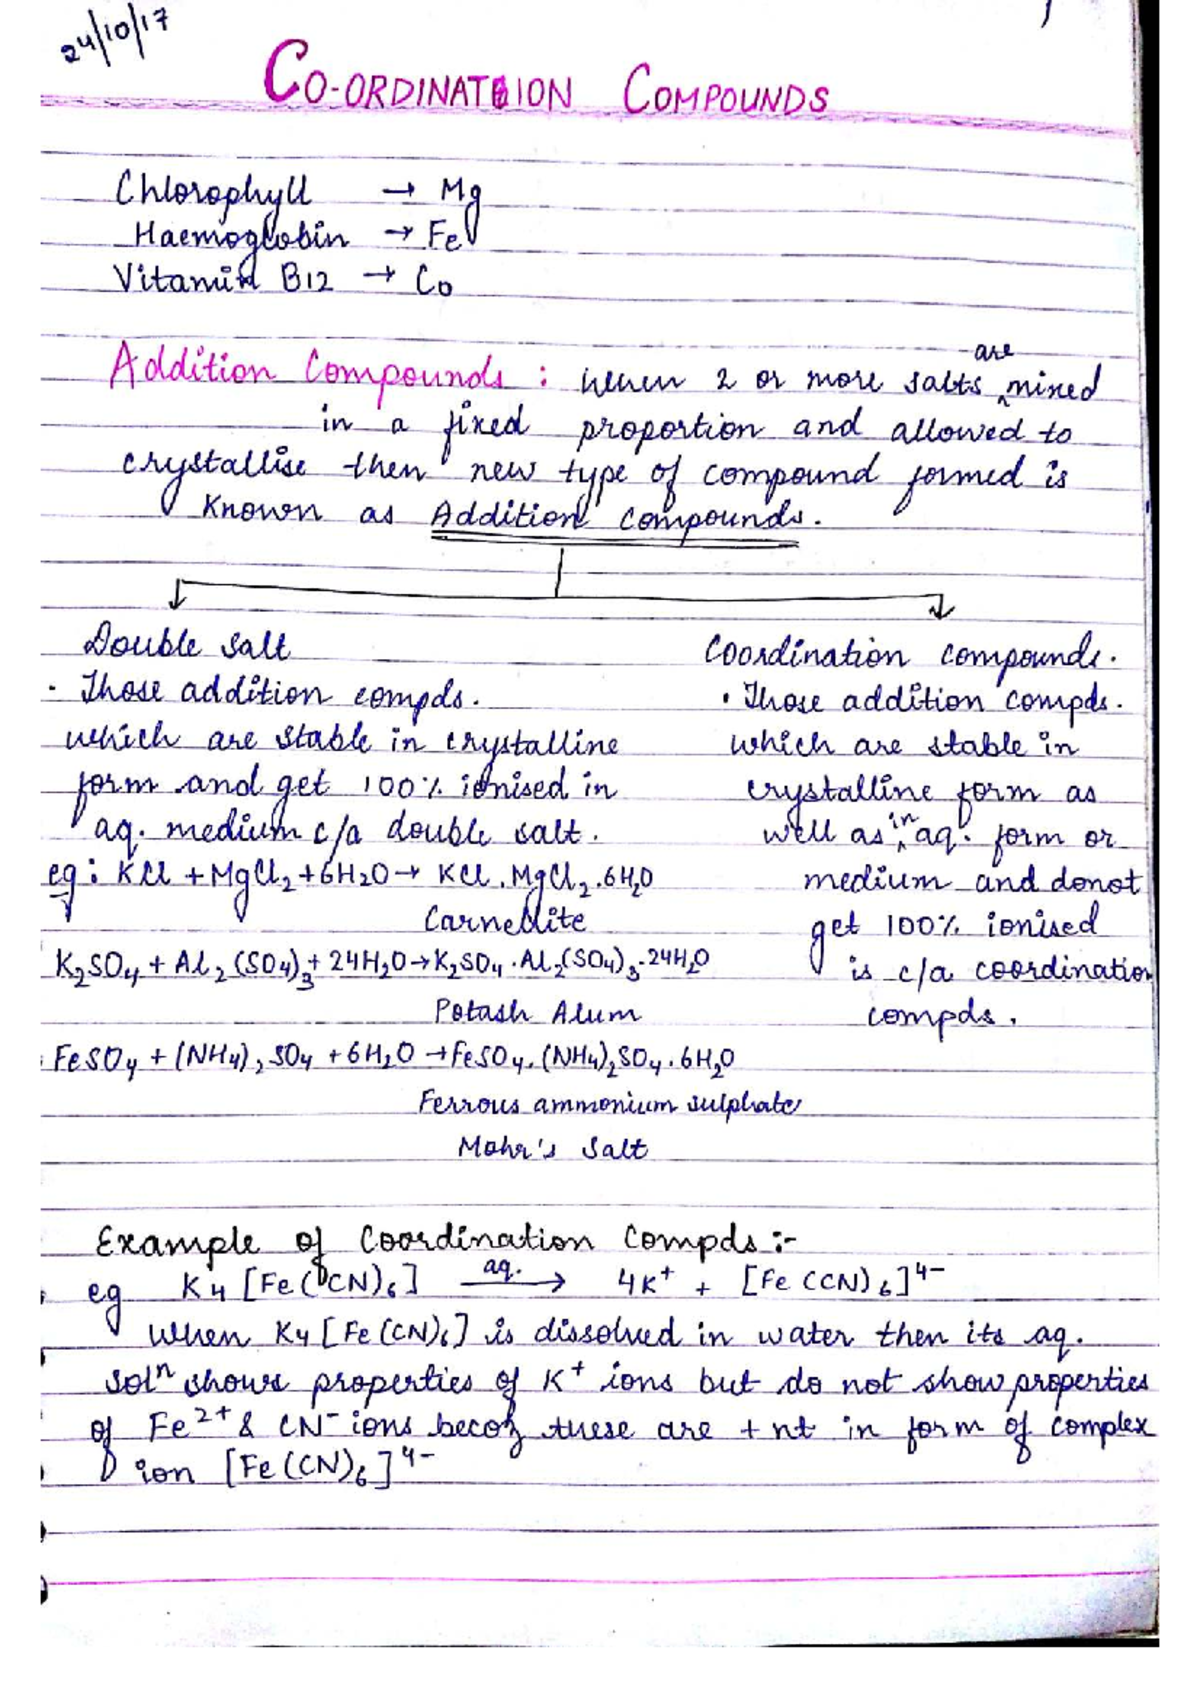 24/10/17
CO-ORDINATION COMPOUNDS
Chlorophyll → Mg
Haemoglobin → Fe
Vitamin B12 → Co
Addition Compounds : when 2 or more salts are mixed
in a fixed proportion and allowed to
crystallise then new type of compound formed is
known as Addition compounds.
Double salt
• Those addition compds.
which are stable in crystalline
form and get 100% ionised in
aq. medium c/a double salt.
eg: KCl + MgCl₂ + 6H₂O → KCl.MgCl₂.6H₂O
Carnellite
K₂SO₄ + Al₂(SO₄)₃ + 24H₂O → K₂SO₄.Al₂(SO₄)₃.24H₂O
Potash Alum
FeSO₄ + (NH₄)₂SO₄ + 6H₂O → FeSO₄.(NH₄)₂SO₄.6H₂O
Ferrous ammonium sulphate
Mohr's Salt
Coordination compounds.
• Those addition compds.
which are stable in
crystalline form as
well as in aq. form or
medium and donot
get 100% ionised
is c/a coordination
compds.
Example of Coordination Compds :-
eg K₄[Fe(CN)₆] aq. → 4K⁺ + [Fe(CN)₆]⁴⁻
When K₄[Fe(CN)₆] is dissolved in water then its aq.
solⁿ shows properties of K⁺ ions but do not show properties
of Fe²⁺ & CN⁻ ions becoz these are +nt in form of complex
ion [Fe(CN)₆]⁴⁻